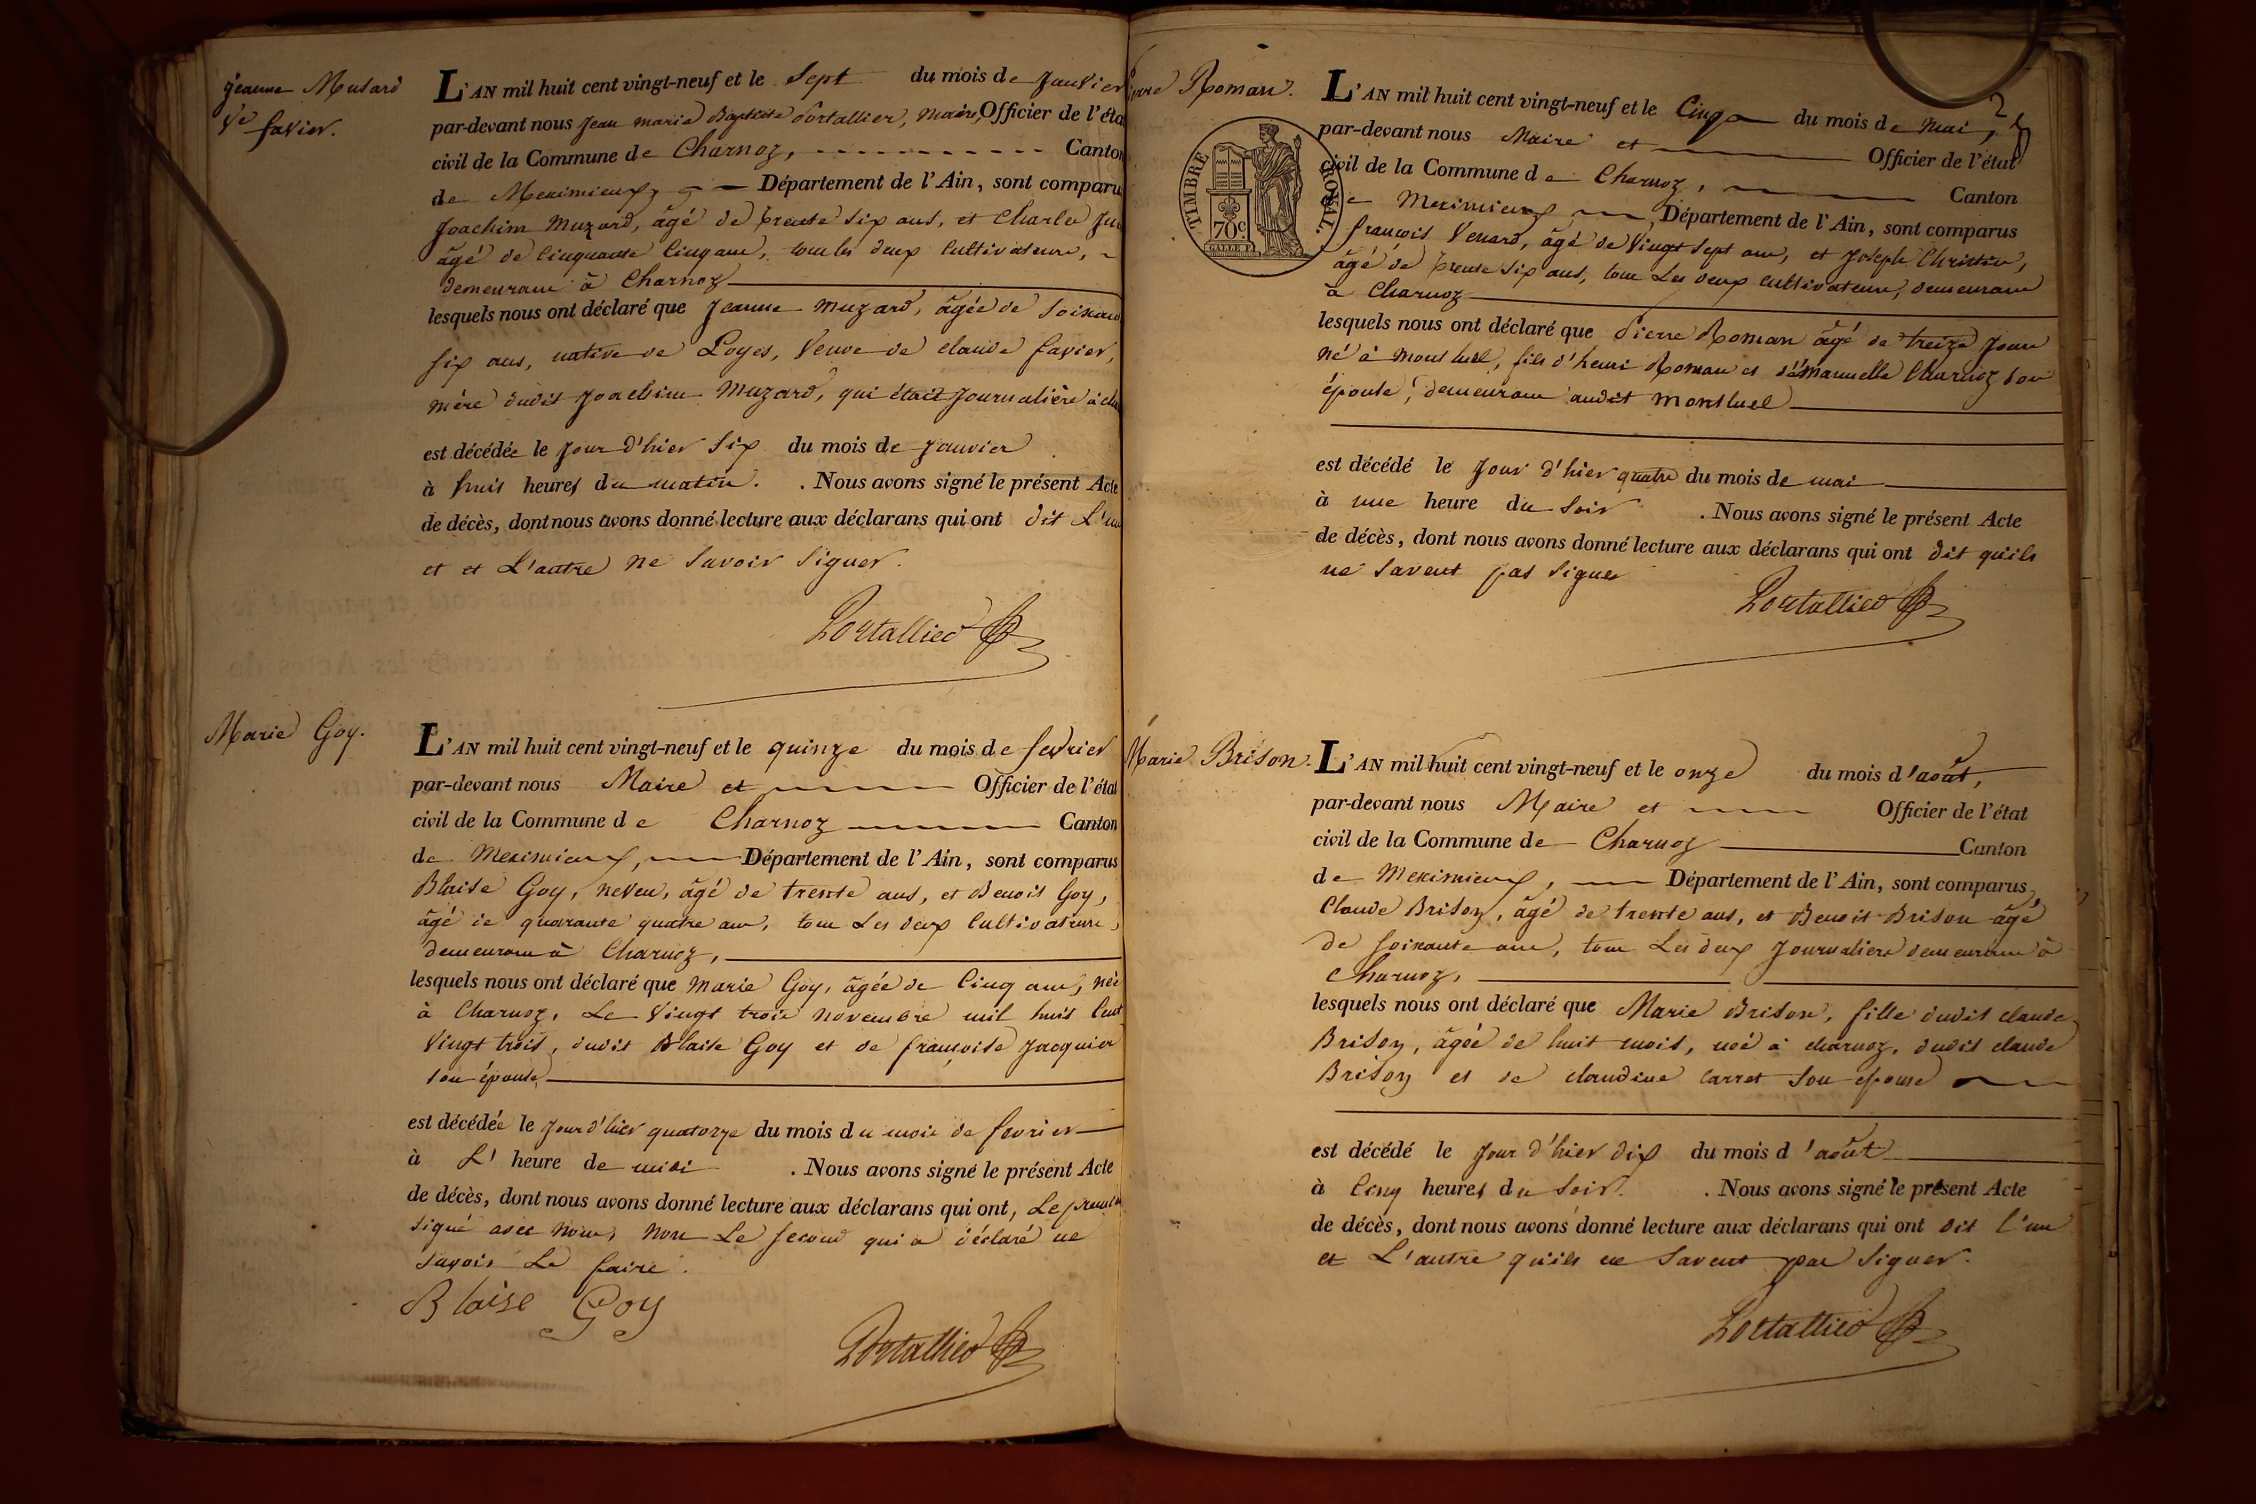 Jeanne Musard
Ve favier.
L'AN mil huit cent vingt-neuf et le Sept du mois de Janvier
par-devant nous Jean marie Baptiste Portallier, maire, Officier de l'éta
civil de la Commune de Charnoz, Canton
de Meximieux, Département de l'Ain, sont comparu
Joachim Muzard, âgé de trente six ans, et Charles
âgé de Cinquante Cinq ans, tous les deux Cultivateurs,
demeurans à Charnoz
lesquels nous ont déclaré que Jeanne Muzard, âgée de Soixan
six ans, native de Loyes, Veuve de claude favier,
mère dudit Joachim Muzard, qui était Journalière à
est décédée le Jour d'hier Six du mois de Janvier
à huit heures du matin. . Nous avons signé le présent Acte
de décès, dont nous avons donné lecture aux déclarans qui ont dit L'un
et et L'autre ne Savoir Signer.
Portallier
Marie Goy.
L'AN mil huit cent vingt-neuf et le quinze du mois de fevrier
par-devant nous Maire et Officier de l'état
civil de la Commune de Charnoz Canton
de Meximieux, Département de l'Ain, sont comparus
Blaise Goy, neveu, âgé de trente ans, et Benoit Goy,
âgé de quarante quatre ans, tous Les deux Cultivateurs,
demeurans à Charnoz,
lesquels nous ont déclaré que Marie Goy, âgée de Cinq ans, née
à Charnoz, Le Vingt trois novembre mil huit Cent
Vingt trois, dudit Blaise Goy et de françoise Jacquier
son épouse,
est décédée le Jour d'hier quatorze du mois du mois de fevrier
à L' heure de midi . Nous avons signé le présent Acte
de décès, dont nous avons donné lecture aux déclarans qui ont, Le premier
signé avec nous, non Le Second qui a déclaré ne
savoir Le faire.
Blaise Goy
Portallier
Roman.
L'AN mil huit cent vingt-neuf et le Cinq du mois de mai,
2
par-devant nous Maire et Officier de l'état
TIMBRE ROYAL.
70c.
civil de la Commune de Charnoz, Canton
de Meximieux Département de l'Ain, sont comparus
françois Venard, âgé de Vingt Sept ans, et Joseph Christin,
âgé de trente Six ans, tous Les deux cultivateurs, demeurans
à Charnoz
lesquels nous ont déclaré que Pierre Roman âgé de treize Jours
né à Montluel, fils d'henri Roman et d'émanuelle Charnoz son
épouse, demeurans audit Montluel
est décédé le Jour d'hier quatre du mois de mai
à une heure du Soir . Nous avons signé le présent Acte
de décès, dont nous avons donné lecture aux déclarans qui ont dit qu'ils
ne Savent pas Signer
Portallier
Marie Brison.
L'AN mil huit cent vingt-neuf et le onze du mois d'août,
par-devant nous Maire et Officier de l'état
civil de la Commune de Charnoz Canton
de Meximieux, Département de l'Ain, sont comparus
Claude Brison, âgé de trente ans, et Benoit Brison âgé
de Soixante ans, tous Les deux Journaliers demeurans à
Charnoz,
lesquels nous ont déclaré que Marie Brison, fille dudit claude
Brison, âgée de huit mois, née à charnoz, dudit claude
Brison et de claudine Carret Son epouse
est décédé le Jour d'hier dix du mois d'août
à Cinq heures du Soir. . Nous avons signé le présent Acte
de décès, dont nous avons donné lecture aux déclarans qui ont dit l'un
et L'autre qu'ils ne Savent pas Signer.
Portallier